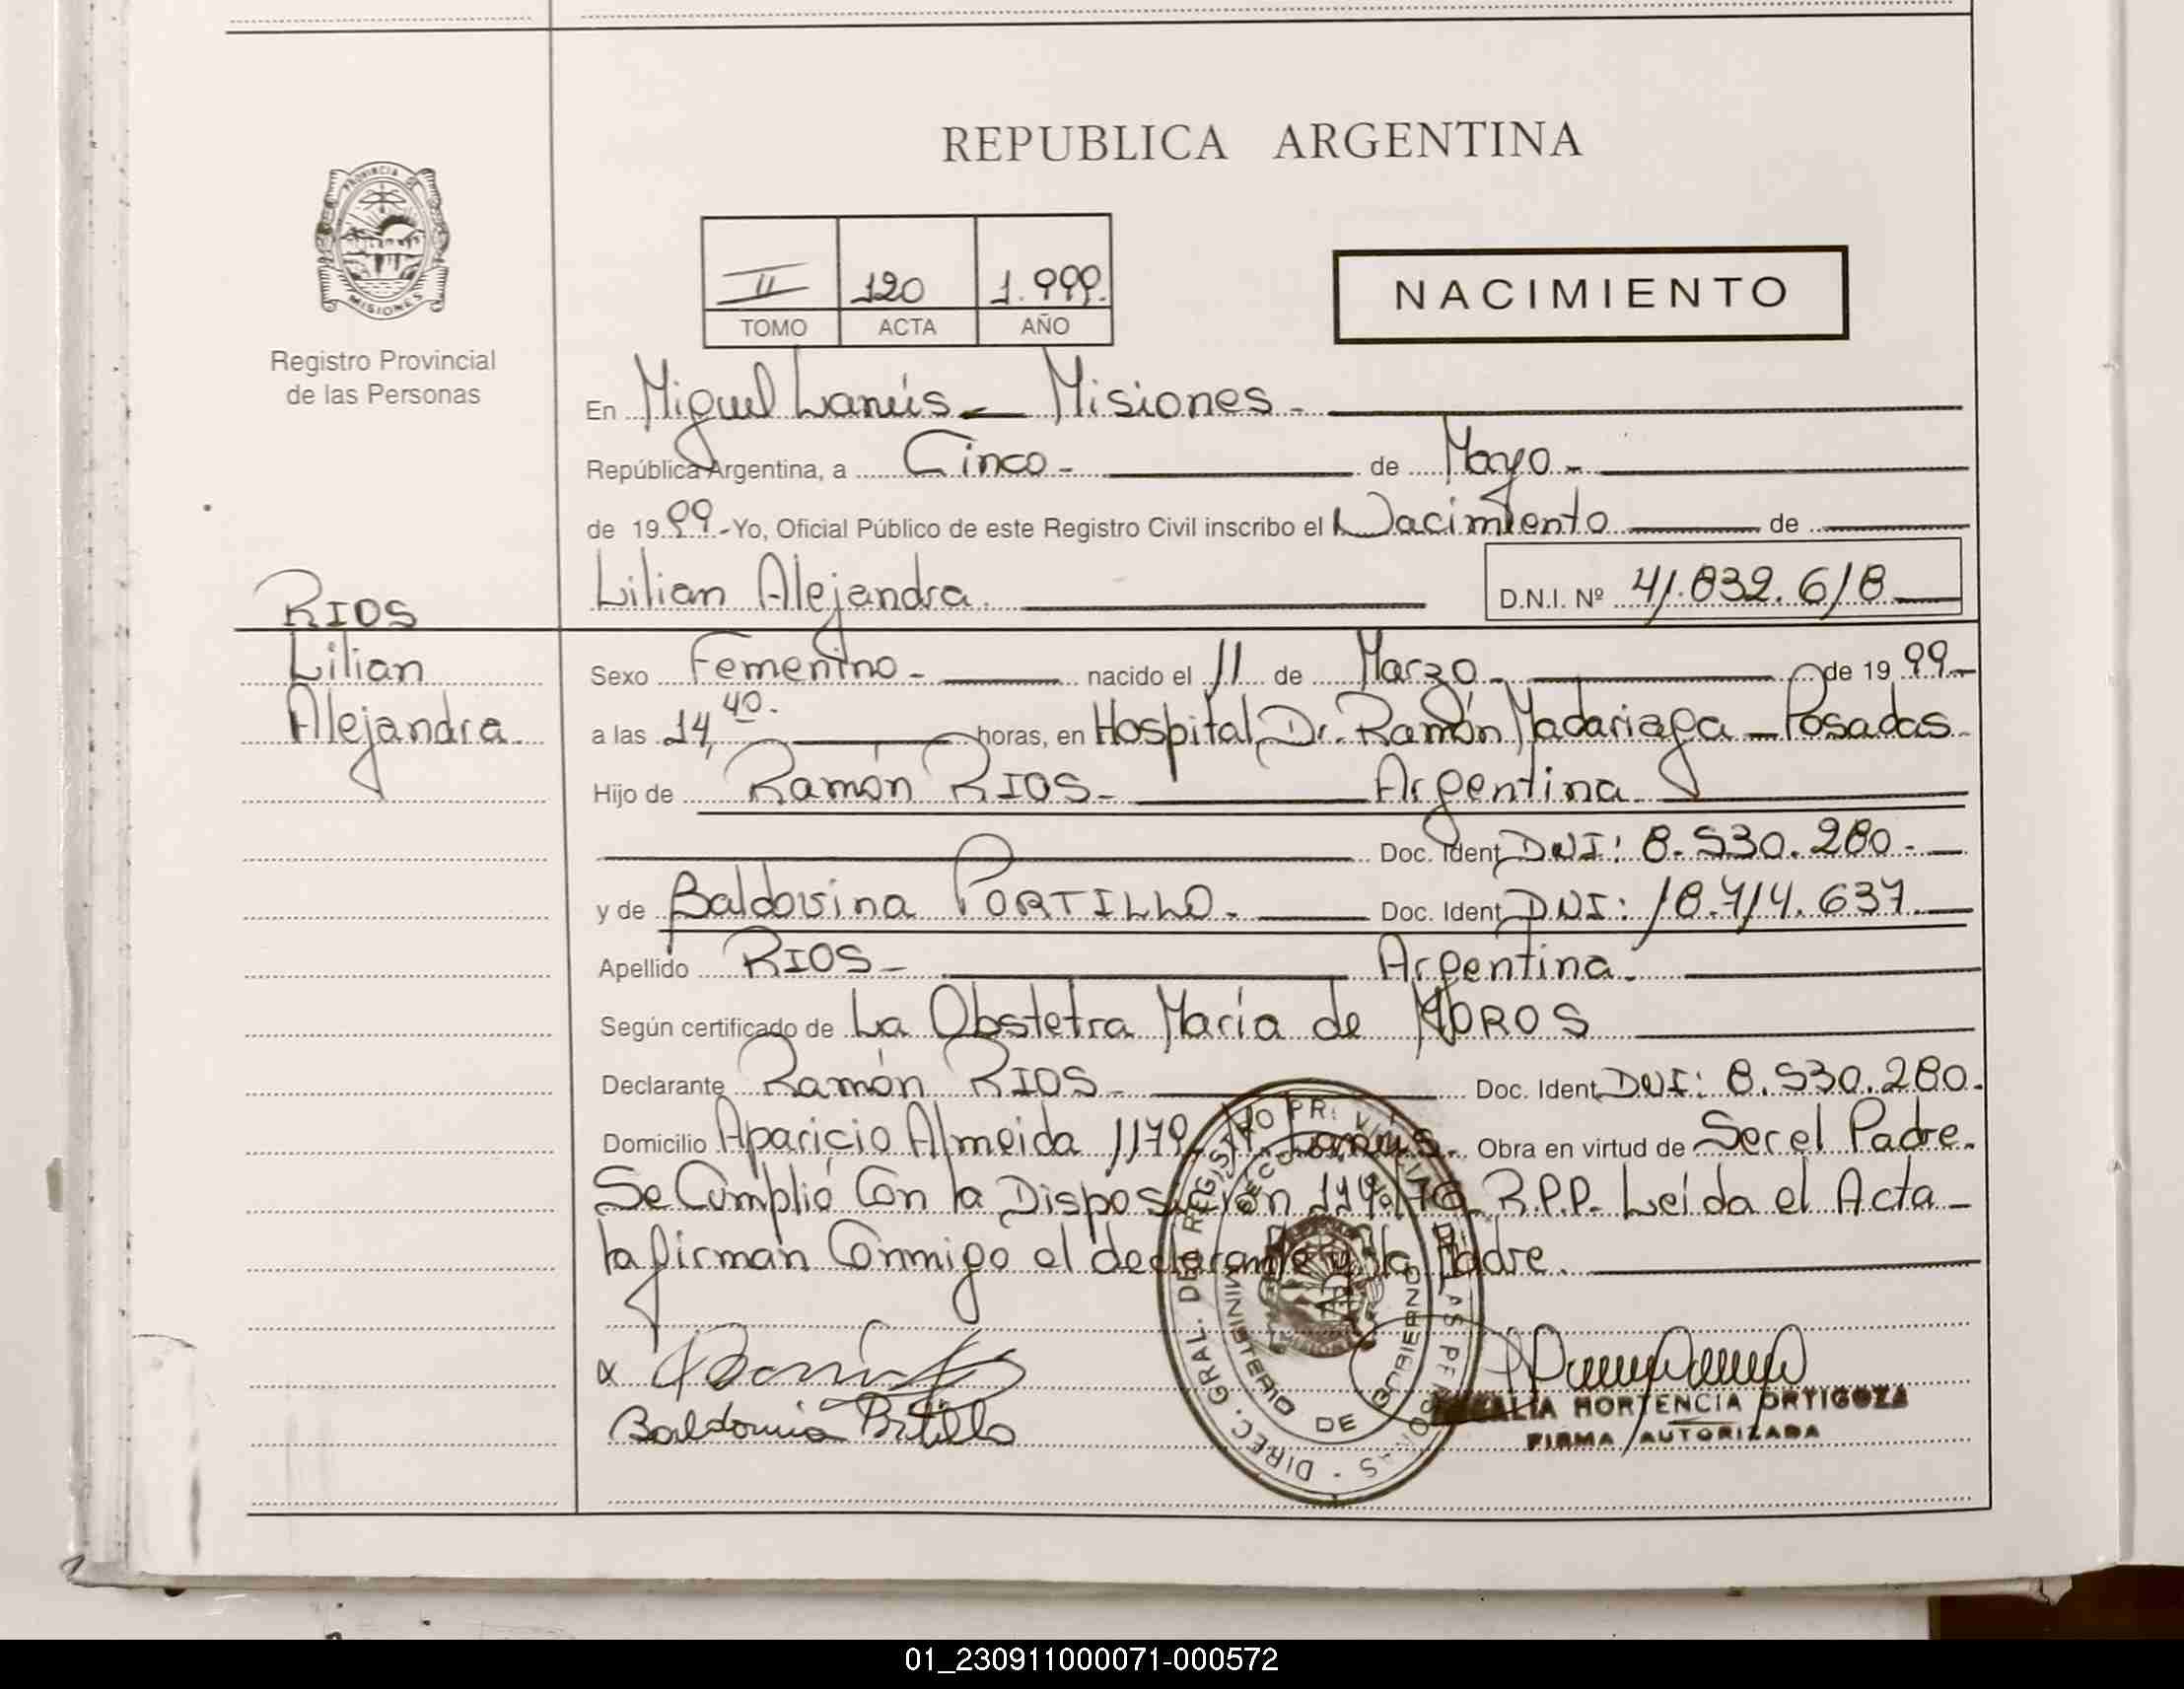 REPUBLICA ARGENTINA
PROVINCIA DE MISIONES
Registro Provincial
de las Personas
II 120 1.999.
TOMO ACTA AÑO
NACIMIENTO
En Miguel Lanús - Misiones -
República Argentina, a Cinco - de Mayo -
de 1999 - Yo, Oficial Público de este Registro Civil inscribo el Nacimiento de
Lilian Alejandra. D.N.I. Nº 41.832.618
RIOS
Lilian
Alejandra.
Sexo Femenino - nacido el 11 de Marzo - de 1999 -
a las 14,40. horas, en Hospital Dr. Ramón Madariaga - Posadas -
Hijo de Ramón RIOS - Argentina.
Doc. Ident. DNI: 8.530.280 -
y de Baldovina PORTILLO - Doc. Ident. DNI: 18.714.637.
Apellido RIOS - Argentina.
Según certificado de La Obstetra María de MOROS
Declarante Ramón RIOS - Doc. Ident. DNI: 8.530.280.
Domicilio Aparicio Almeida 1179 - M. Lanús. Obra en virtud de Ser el Padre.
Se Cumplió Con la Disposición R.P.P. Leída el Acta -
la firman Conmigo el declarante y la Madre.
Baldovina Portillo
HORTENCIA ORTIGOZA
FIRMA AUTORIZADA
DIREC. GRAL. DEL REGISTRO PROVINCIAL DE LAS PERSONAS
MINISTERIO DE GOBIERNO
01_230911000071-000572